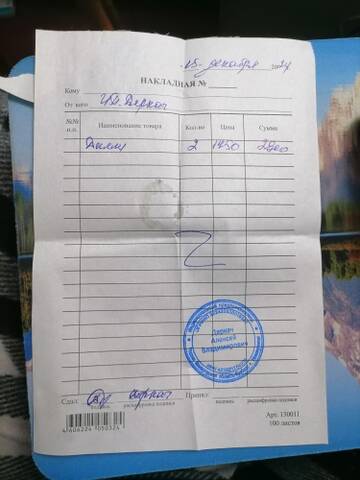 15 декабря 2024
НАКЛАДНАЯ №
Кому
От кого ИП. Деркач
№№ п.п. Наименование товара Кол-во Цена Сумма
2 1450 2900
Деркач
Алексей
Владимирович
Сдал Деркач Принял
подпись расшифровка подписи подпись расшифровка подписи
Арт. 130011
100 листов
4606224 050324